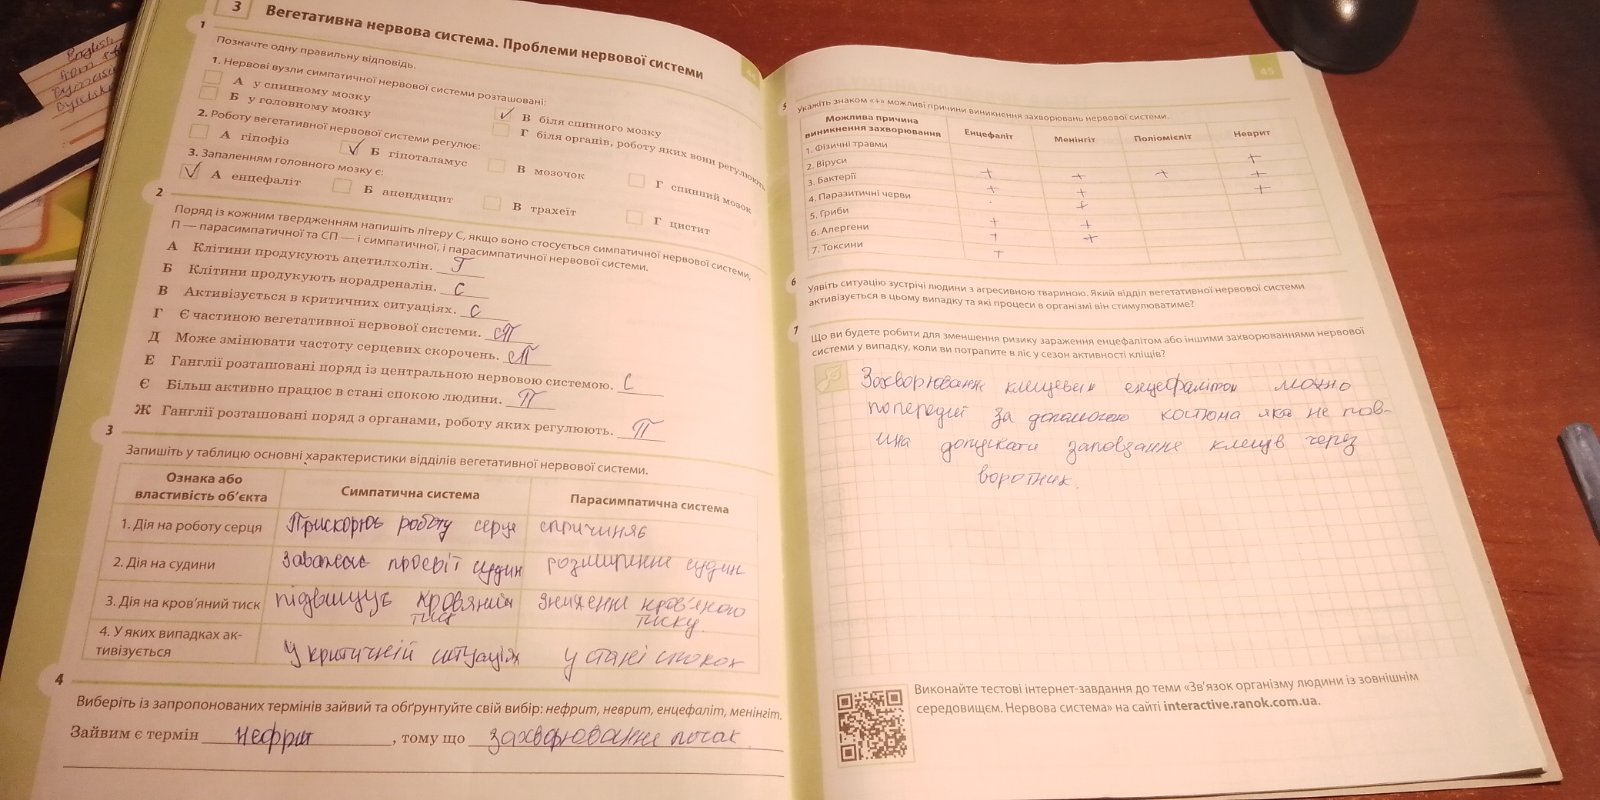 English
3 Вегетативна нервова система. Проблеми нервової системи
44
1
Позначте одну правильну відповідь.
1. Нервові вузли симпатичної нервової системи розташовані:
А у спинному мозку
✓ В біля спинного мозку
Б у головному мозку
Г біля органів, роботу яких вони регулюють
2. Роботу вегетативної нервової системи регулює:
А гіпофіз ✓ Б гіпоталамус В мозочок Г спинний мозок
3. Запаленням головного мозку є:
✓ А енцефаліт Б апендицит В трахеїт Г цистит
2
Поряд із кожним твердженням напишіть літеру С, якщо воно стосується симпатичної нервової системи,
П — парасимпатичної та СП — і симпатичної, і парасимпатичної нервової системи.
А Клітини продукують ацетилхолін. П
Б Клітини продукують норадреналін. С
В Активізується в критичних ситуаціях. С
Г Є частиною вегетативної нервової системи. СП
Д Може змінювати частоту серцевих скорочень. СП
Е Ганглії розташовані поряд із центральною нервовою системою. С
Є Більш активно працює в стані спокою людини. П
Ж Ганглії розташовані поряд з органами, роботу яких регулюють. П
3
Запишіть у таблицю основні характеристики відділів вегетативної нервової системи.
Ознака або властивість об'єкта Симпатична система Парасимпатична система
1. Дія на роботу серця Прискорює роботу серця спричиняє
2. Дія на судини просвіт судин розширення судин
3. Дія на кров'яний тиск підвищує кровяний тиск зниження кров'яного тиску
4. У яких випадках активізується У критичній ситуації у стані спокою
4
Виберіть із запропонованих термінів зайвий та обґрунтуйте свій вибір: нефрит, неврит, енцефаліт, менінгіт.
Зайвим є термін нефрит, тому що захворювання
45
5
Укажіть знаком «+» можливі причини виникнення захворювань нервової системи.
Можлива причина виникнення захворювання Енцефаліт Менінгіт Поліомієліт Неврит
1. Фізичні травми +
2. Віруси + + + +
3. Бактерії + + +
4. Паразитичні черви +
5. Гриби + +
6. Алергени + +
7. Токсини +
6
Уявіть ситуацію зустрічі людини з агресивною твариною. Який відділ вегетативної нервової системи
активізується в цьому випадку та які процеси в організмі він стимулюватиме?
7
Що ви будете робити для зменшення ризику зараження енцефалітом або іншими захворюваннями нервової
системи у випадку, коли ви потрапите в ліс у сезон активності кліщів?
Захворювання клещевым енцефалітом можно
попередит за допомогою костюма яка не пов-
ина допускати заповзання клещів через
воротник.
Виконайте тестові інтернет-завдання до теми «Зв'язок організму людини із зовнішнім
середовищем. Нервова система» на сайті interactive.ranok.com.ua.